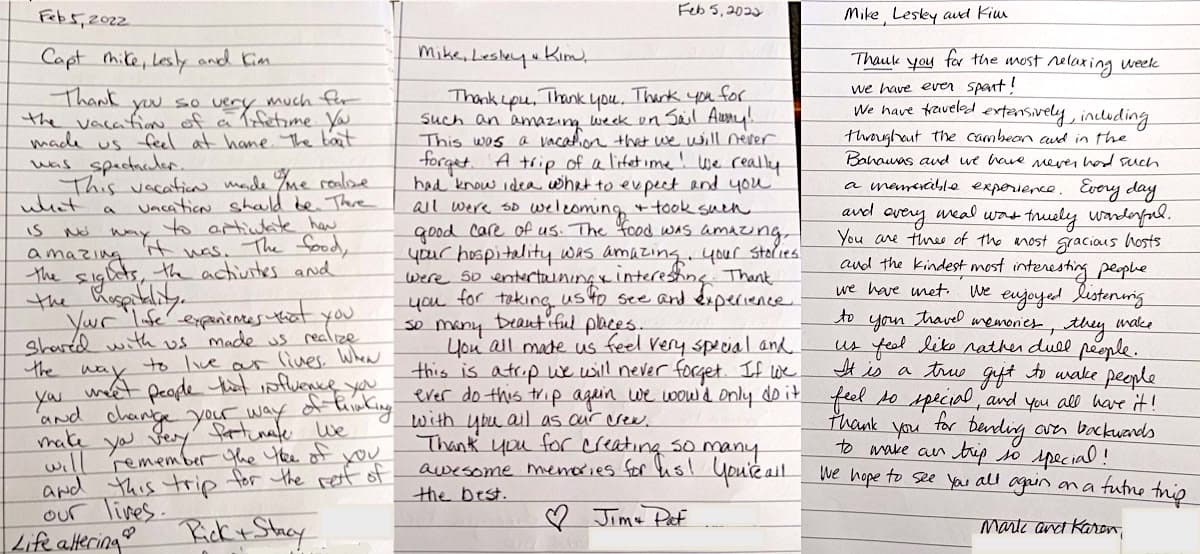 Feb 5, 2022
Capt Mike, Lesly and Kim
Thank you so very much for
the vacation of a lifetime. You
made us feel at home. The boat
was spectacular.
This vacation made me realize
what a vacation should be. There
is no way to articulate how
amazing it was. The food,
the sights, the activites and
the hospitality.
Your "life" experiences that you
shared with us made us realize
the way to live our lives. When
you meet people that influence you
and change your way of thinking
make you very fortunate. We
will remember the of you
and this trip for the rest of
our lives.
Life altering
Rick + Stacy
Feb 5, 2022
Mike, Lesley & Kim,
Thank you, Thank you, Thank you for
such an amazing week on Sail Away!
This was a vacation that we will never
forget. A trip of a lifetime! We really
had know idea what to expect and you
all were so welcoming + took such
good care of us. The food was amazing,
your hospitality was amazing, your stories
were so entertaining & interesting. Thank
you for taking us to see and experience
so many beautiful places.
You all made us feel very special and
this is a trip we will never forget. If we
ever do this trip again we would only do it
with you all as our crew.
Thank you for creating so many
awesome memories for us! You're all
the best.
♡ Jim & Pat
Mike, Lesley and Kim
Thank you for the most relaxing week
we have ever spent!
We have traveled extensively, including
throughout the Carribean and in the
Bahamas and we have never had such
a memorable experience. Every day
and every meal was truely wonderful.
You are three of the most gracious hosts
and the kindest most interesting people
we have met. We enjoyed listening
to your travel memories, they make
us feel like rather dull people.
It is a true gift to make people
feel so special, and you all have it!
Thank you for bending over backwards
to make our trip so special!
We hope to see you all again on a future trip
Mark and Karen